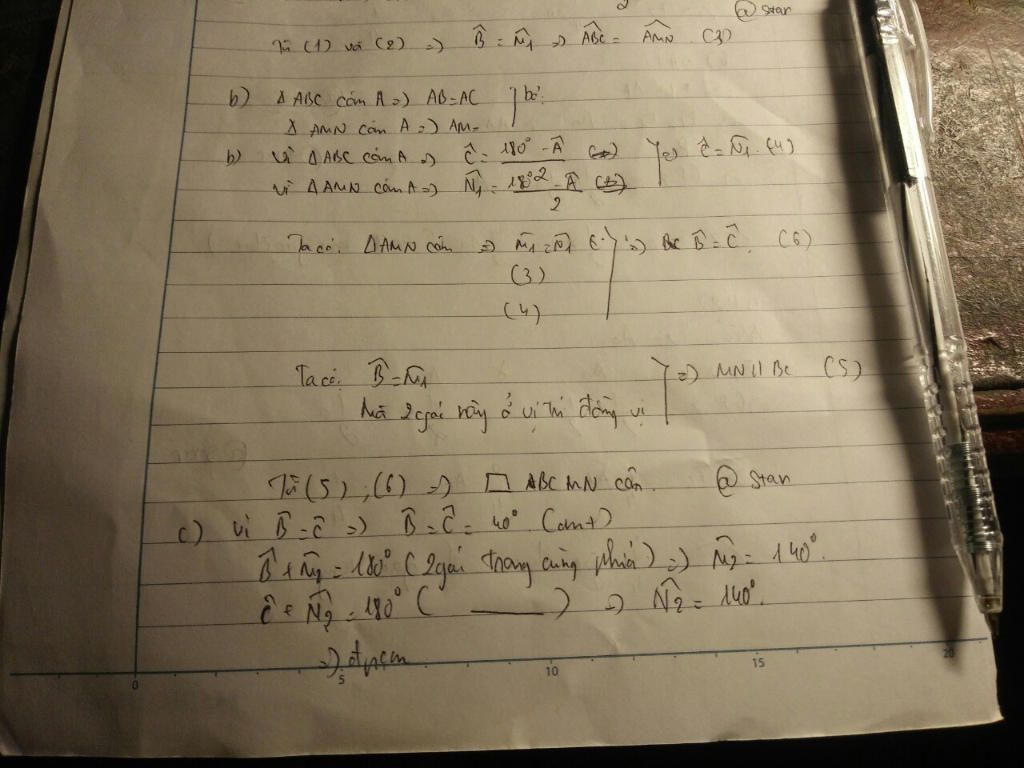 @ Star
Từ (1) và (2) => B̂ = M̂1 => ABC = AMN (3)
b) Δ ABC cân A => AB=AC } bỏ.
Δ AMN cân A => AM=
b) Vì Δ ABC cân A => Ĉ = (180° - Â)/2 } => Ĉ = N̂1. (4)
Vì Δ AMN cân A => N̂1 = (180° - Â)/2
Ta có: Δ AMN cân => M̂1 = N̂1 } => B̂ = Ĉ. (6)
(3)
(4)
Ta có: B̂ = M̂1 } => MN // BC (5)
Mà 2 góc này ở vị trí đồng vị
Từ (5), (6) => BCMN cân. @ Star
c) Vì B̂ = Ĉ => B̂ = Ĉ = 40° (cmt)
B̂ + M̂2 = 180° (2 góc trong cùng phía) => M̂2 = 140°.
Ĉ + N̂2 = 180° ( ——— ) => N̂2 = 140°.
=> đpcm
0 5 10 15 20